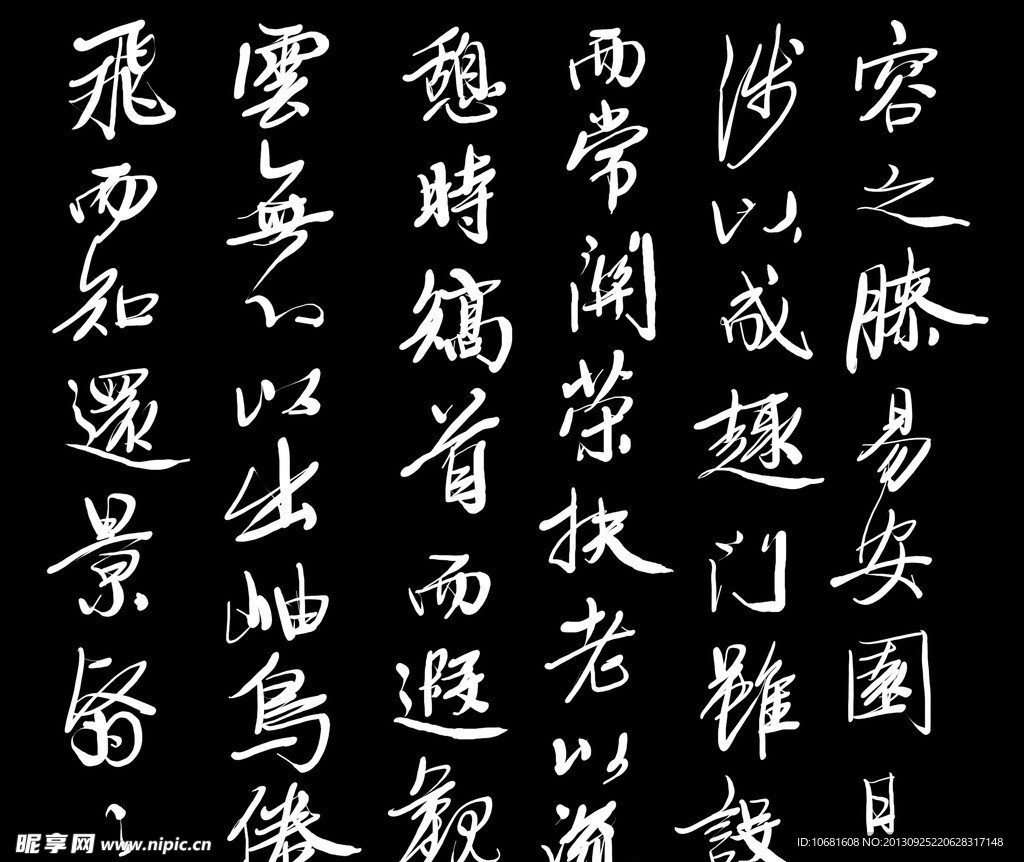 容之膝易安園日
涉以成趣門雖設
而常關策扶老以流
憩時矯首而遐觀
雲無心以出岫鳥倦
飛而知還景翳々
昵享网 www.nipic.cn
ID:10681608 NO:20130925220628317148